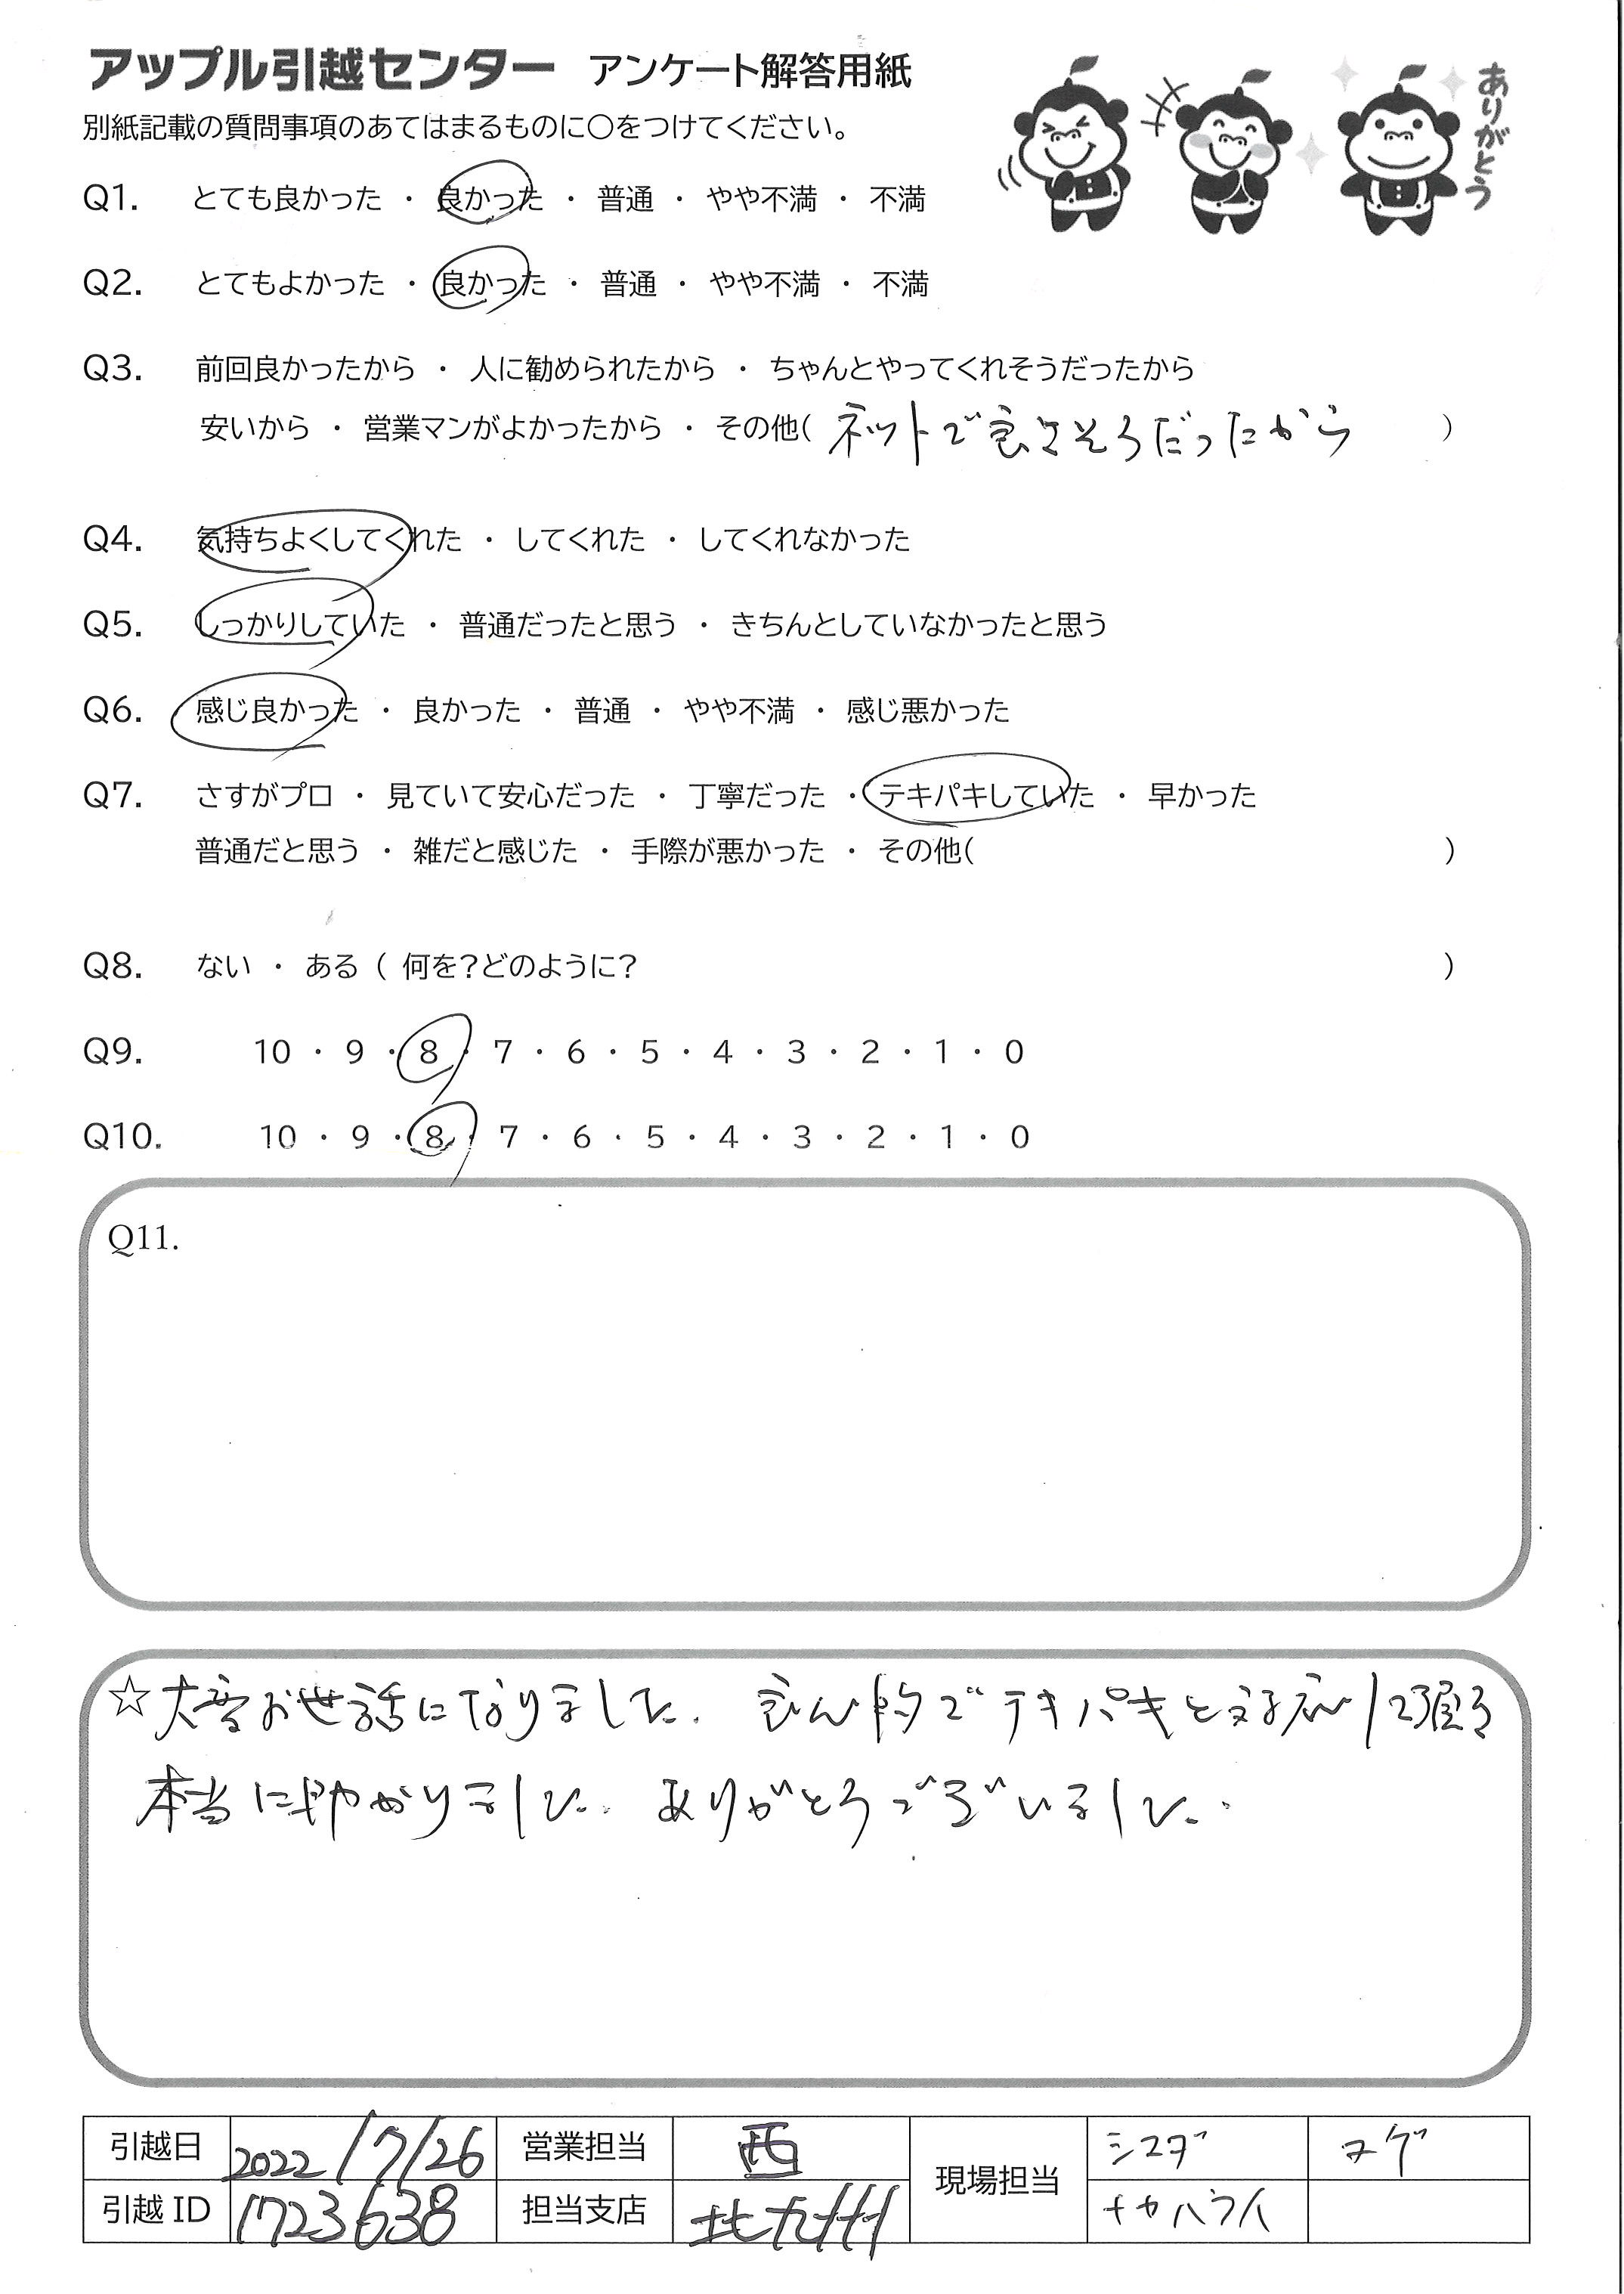 アップル引越センター アンケート解答用紙
別紙記載の質問事項のあてはまるものに○をつけてください。
ありがとう
Q1. とても良かった ・ 良かった ・ 普通 ・ やや不満 ・ 不満
Q2. とてもよかった ・ 良かった ・ 普通 ・ やや不満 ・ 不満
Q3. 前回良かったから ・ 人に勧められたから ・ ちゃんとやってくれそうだったから
安いから ・ 営業マンがよかったから ・ その他( ネットで良さそうだったから )
Q4. 気持ちよくしてくれた ・ してくれた ・ してくれなかった
Q5. しっかりしていた ・ 普通だったと思う ・ きちんとしていなかったと思う
Q6. 感じ良かった ・ 良かった ・ 普通 ・ やや不満 ・ 感じ悪かった
Q7. さすがプロ ・ 見ていて安心だった ・ 丁寧だった ・ テキパキしていた ・ 早かった
普通だと思う ・ 雑だと感じた ・ 手際が悪かった ・ その他( )
Q8. ない ・ ある ( 何を?どのように? )
Q9. 10 ・ 9 ・ 8 ・ 7 ・ 6 ・ 5 ・ 4 ・ 3 ・ 2 ・ 1 ・ 0
Q10. 10 ・ 9 ・ 8 ・ 7 ・ 6 ・ 5 ・ 4 ・ 3 ・ 2 ・ 1 ・ 0
Q11.
☆大変お世話になりました. テキパキと対応して頂き
本当に助かりました. ありがとうございました.
引越日 2022/7/26 営業担当 西 現場担当 シマダ
引越 ID 1723638 担当支店 北九州